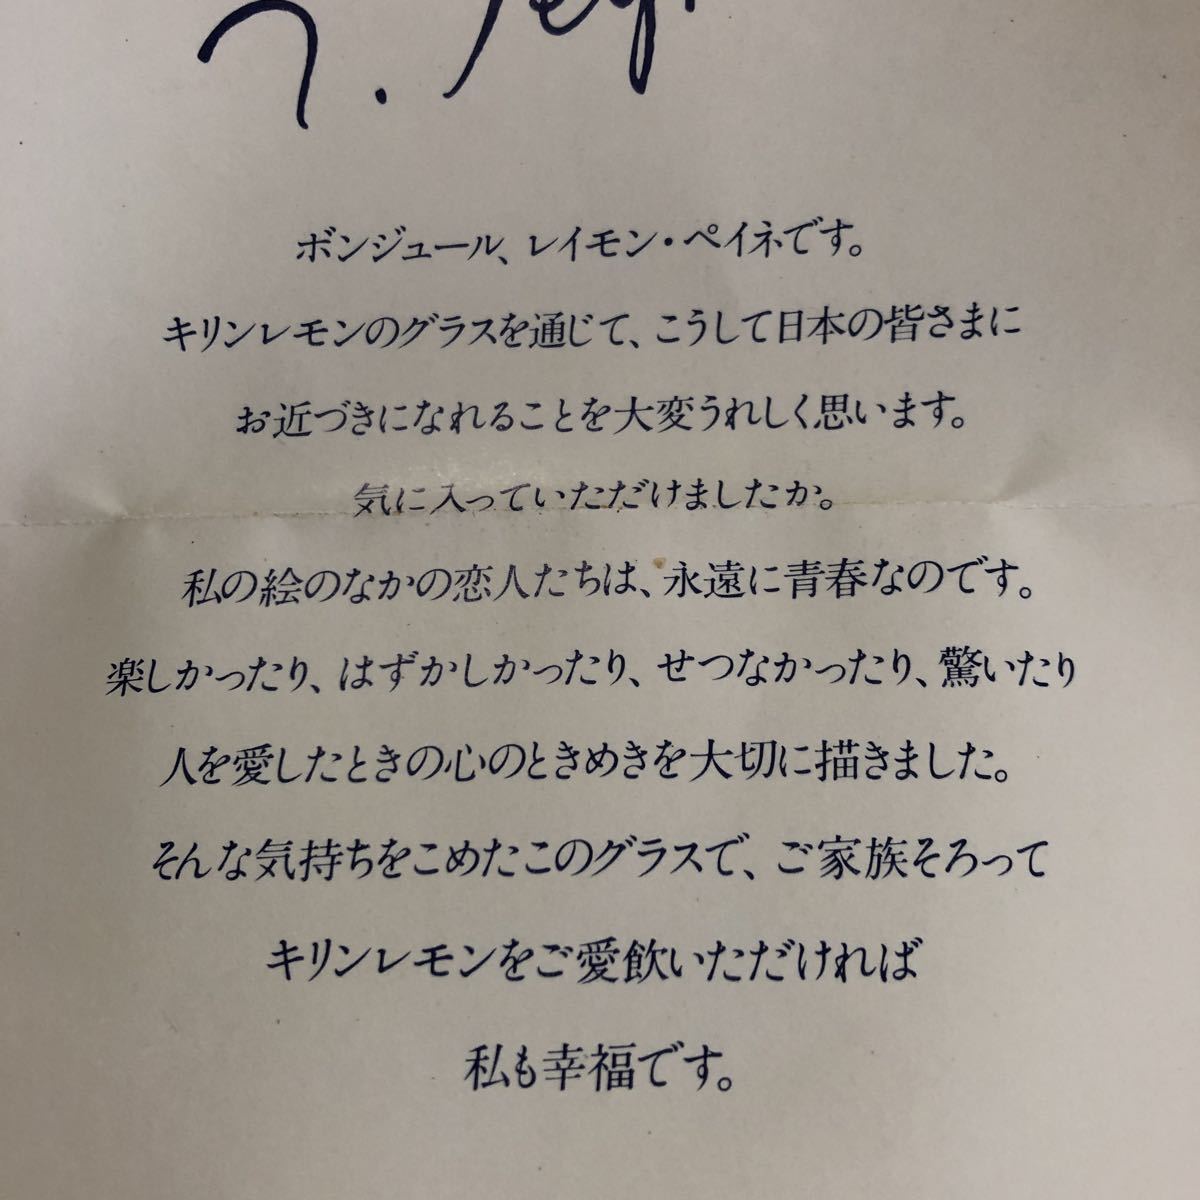 ボンジュール、レイモン・ペイネです。
キリンレモンのグラスを通じて、こうして日本の皆さまに
お近づきになれることを大変うれしく思います。
気に入っていただけましたか。
私の絵のなかの恋人たちは、永遠に青春なのです。
楽しかったり、はずかしかったり、せつなかったり、驚いたり
人を愛したときの心のときめきを大切に描きました。
そんな気持ちをこめたこのグラスで、ご家族そろって
キリンレモンをご愛飲いただければ
私も幸福です。